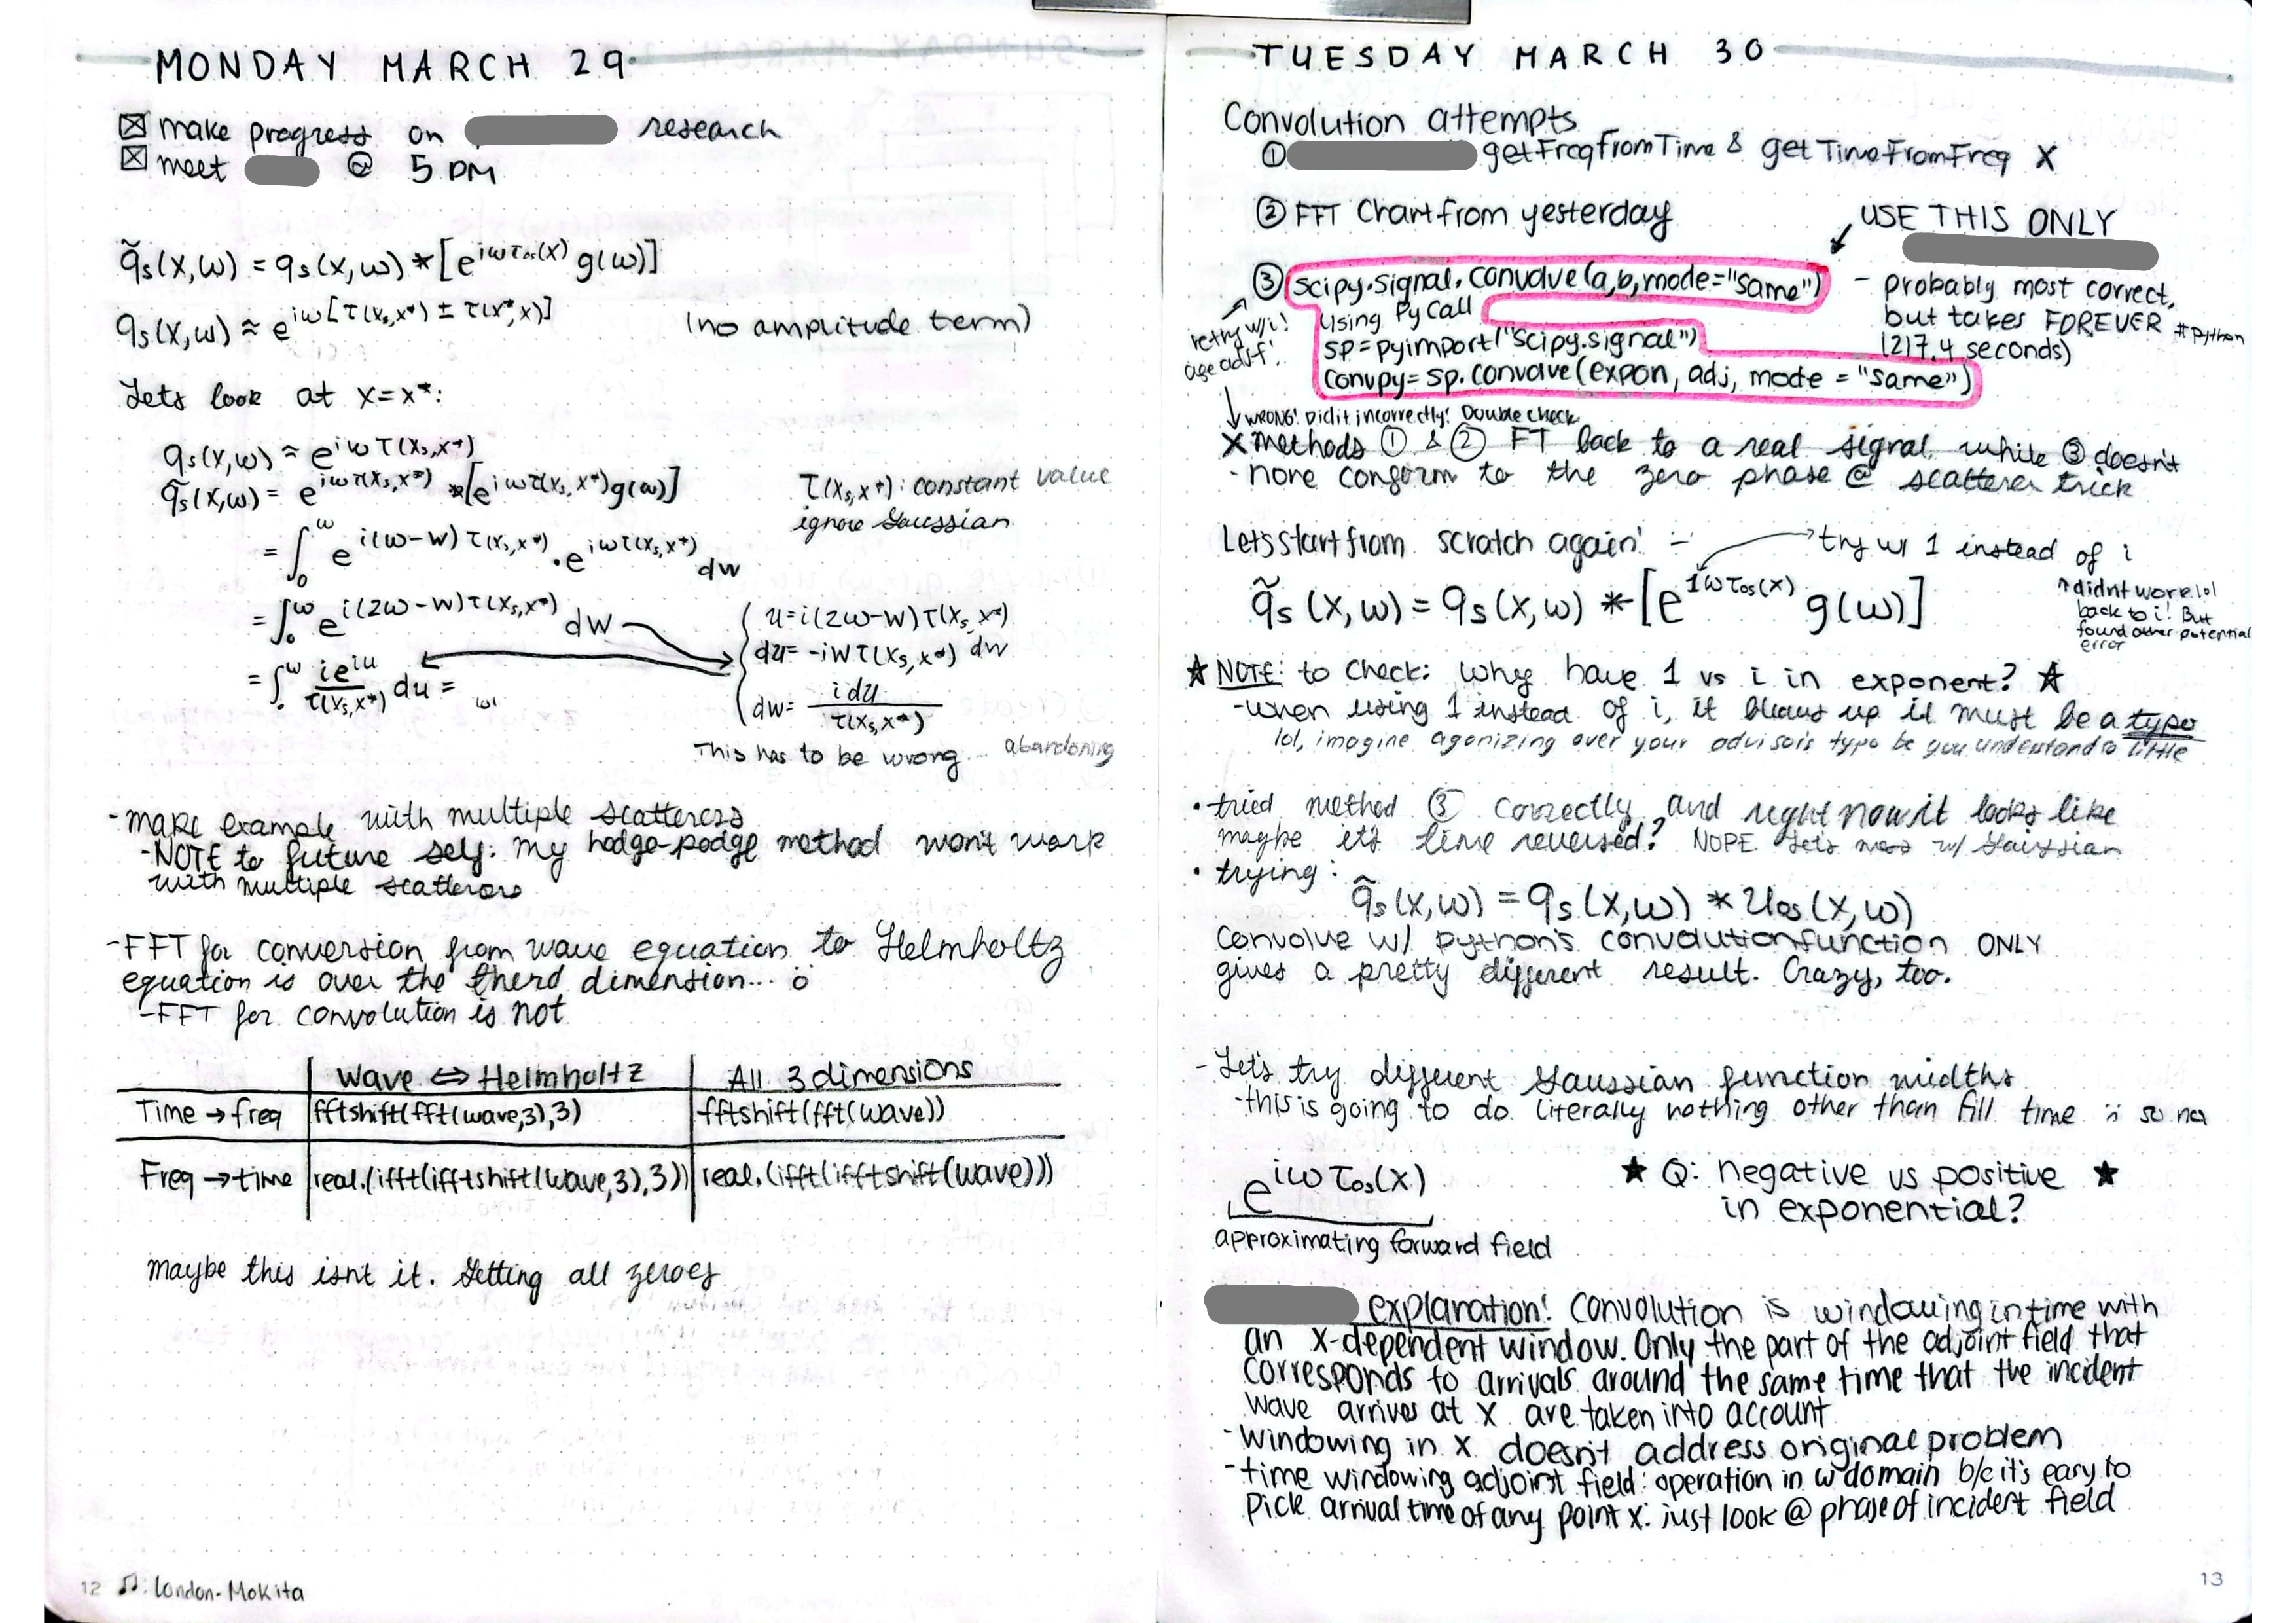 MONDAY MARCH 29
☒ make progress on research
☒ meet @ 5 PM
q̃s(x,ω) = qs(x,ω) * [e^{iωτos(x)} g(ω)]
qs(x,ω) ≈ e^{iω[τ(xs,x*) ± τ(x*,x)]} (no amplitude term)
Lets look at x=x*:
qs(x,ω) ≈ e^{iωτ(xs,x*)}
q̃s(x,ω) = e^{iωτ(xs,x*)} *[e^{iωτ(xs,x*)}g(ω)]
τ(xs,x*): constant value
ignore Gaussian
= ∫₀^ω e^{i(ω-w)τ(xs,x*)} · e^{iωτ(xs,x*)} dw
= ∫₀^ω e^{i(2ω-w)τ(xs,x*)} dw
u=i(2ω-w)τ(xs,x*)
du= -iwτ(xs,x*) dw
dw= i du / τ(xs,x*)
= ∫₀^ω ie^{iu} / τ(xs,x*) du =
This has to be wrong... abandoning
- make example with multiple scatterers
- NOTE to future self: my hodge-podge method won't work
with multiple scatterers
- FFT for conversion from wave equation to Helmholtz
equation is over the third dimension...
- FFT for convolution is not
Wave ⇔ Helmholtz All 3 dimensions
Time → freq fftshift(fft(wave,3),3) fftshift(fft(wave))
Freq → time real.(ifft(ifftshift(wave,3),3)) real.(ifft(ifftshift(wave)))
maybe this isnt it. Getting all zeroes
12 ♫: London-Mokita
TUESDAY MARCH 30
Convolution attempts
① getFreqFromTime & getTimeFromFreq X
② FFT Chart from yesterday
USE THIS ONLY
③ scipy.signal.convolve(a,b,mode="same")
Using PyCall
sp=pyimport("scipy.signal")
convpy= sp.convolve(expon, adj, mode = "same")
- probably most correct,
but takes FOREVER #python
(217.4 seconds)
retry w/i!
WRONG! Did it incorrectly! Double check
X methods ① & ② FT back to a real signal while ③ doesn't
- none conform to the zero phase @ scatterer trick
Let's start from scratch again! → try w/ 1 instead of i
q̃s(x,ω) = qs(x,ω) * [e^{1ωτos(x)} g(ω)]
↑didnt work lol
back to i! But
found other potential
error
★ NOTE: to check: why have 1 vs i in exponent? ★
- when using 1 instead of i, it blows up it must be a typo
lol, imagine agonizing over your advisor's typo bc you understand so little
• tried method ③ correctly, and right now it looks like
maybe it's time reversed? NOPE. Let's mess w/ Gaussian
• trying:
q̃s(x,ω) = qs(x,ω) * uos(x,ω)
Convolve w/ python's convolution function ONLY
gives a pretty different result. Crazy, too.
- Let's try different Gaussian function widths
- this is going to do literally nothing other than fill time so no
e^{iωτos(x)}
approximating forward field
★ Q: negative vs positive ★
in exponential?
explanation! Convolution is windowing in time with
an x-dependent window. Only the part of the adjoint field that
corresponds to arrivals around the same time that the incident
wave arrives at x are taken into account
- windowing in x doesn't address original problem
- time windowing adjoint field: operation in ω domain b/c it's easy to
pick arrival time of any point x: just look @ phase of incident field
13